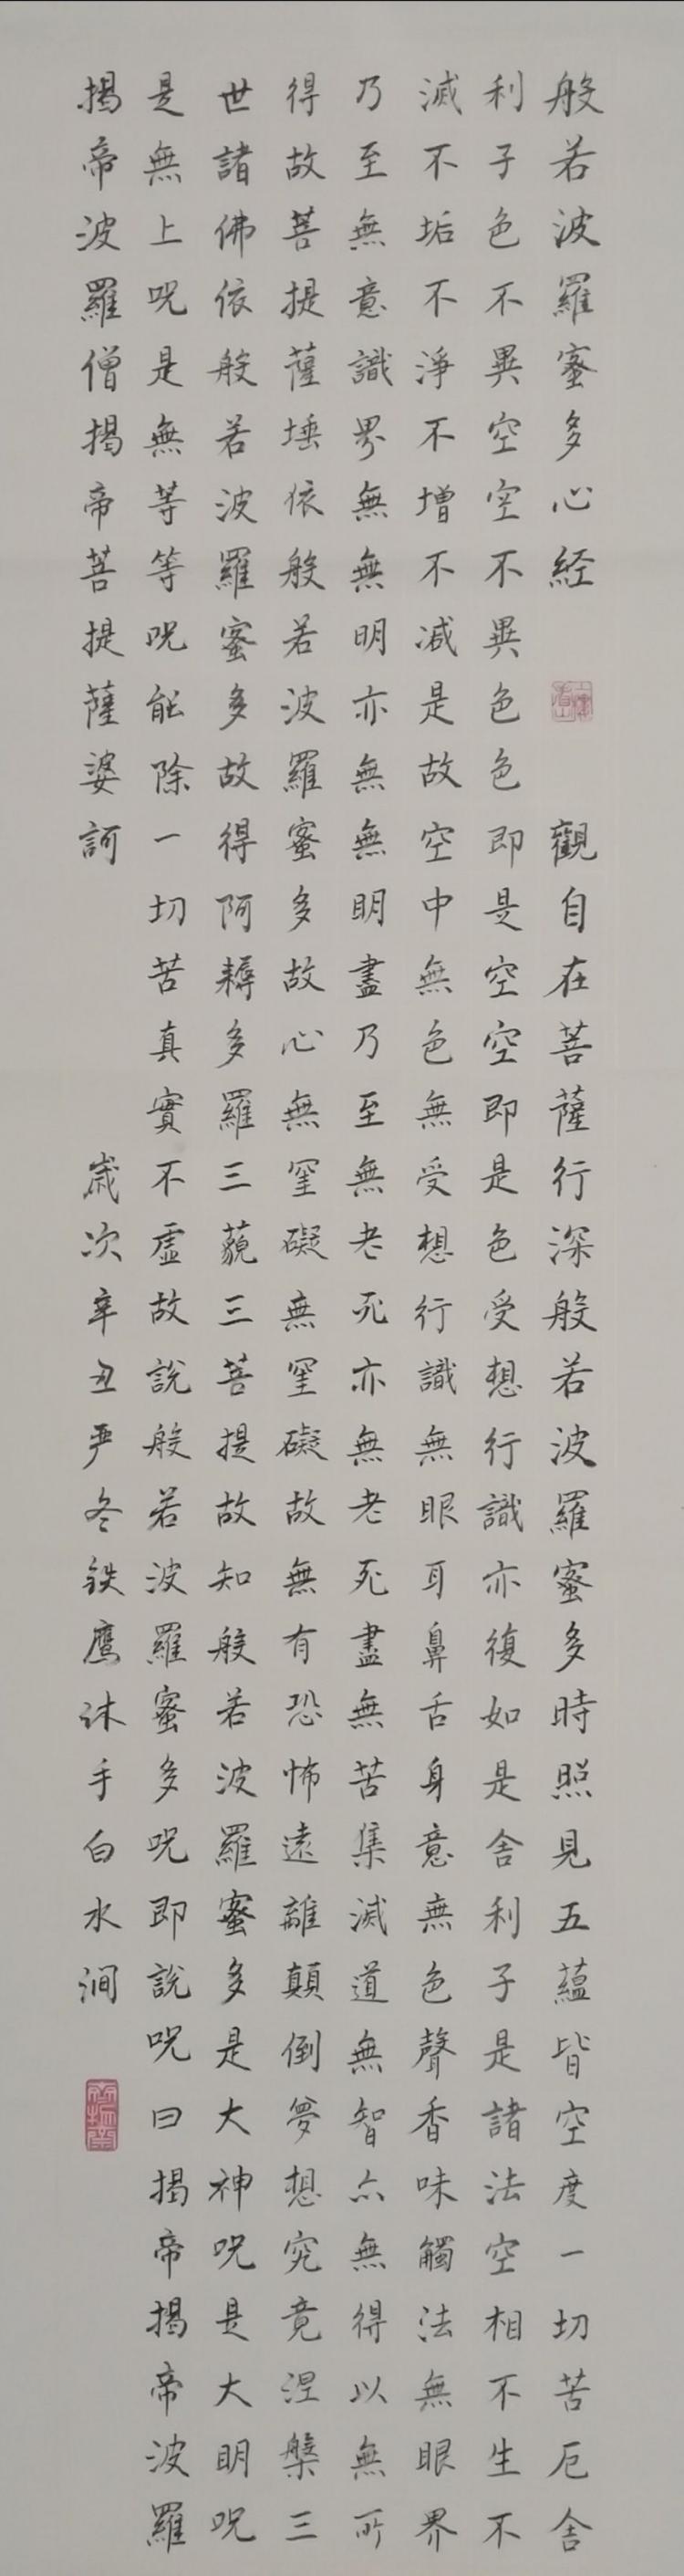 般若波羅蜜多心経 觀自在菩薩行深般若波羅蜜多時照見五蘊皆空度一切苦厄舍
利子色不異空空不異色色即是空空即是色受想行識亦復如是舍利子是諸法空相不生不
滅不垢不淨不增不减是故空中無色無受想行識無眼耳鼻舌身意無色聲香味觸法無眼界
乃至無意識界無無明亦無無明盡乃至無老死亦無老死盡無苦集滅道無智亦無得以無所
得故菩提薩埵依般若波羅蜜多故心無罣礙無罣礙故無有恐怖遠離顛倒夢想究竟涅槃三
世諸佛依般若波羅蜜多故得阿耨多羅三藐三菩提故知般若波羅蜜多是大神咒是大明咒
是無上咒是無等等咒能除一切苦真實不虛故說般若波羅蜜多咒即說咒曰揭帝揭帝波羅
揭帝波羅僧揭帝菩提薩婆訶 歲次辛丑严冬铁鹰沐手白水涧